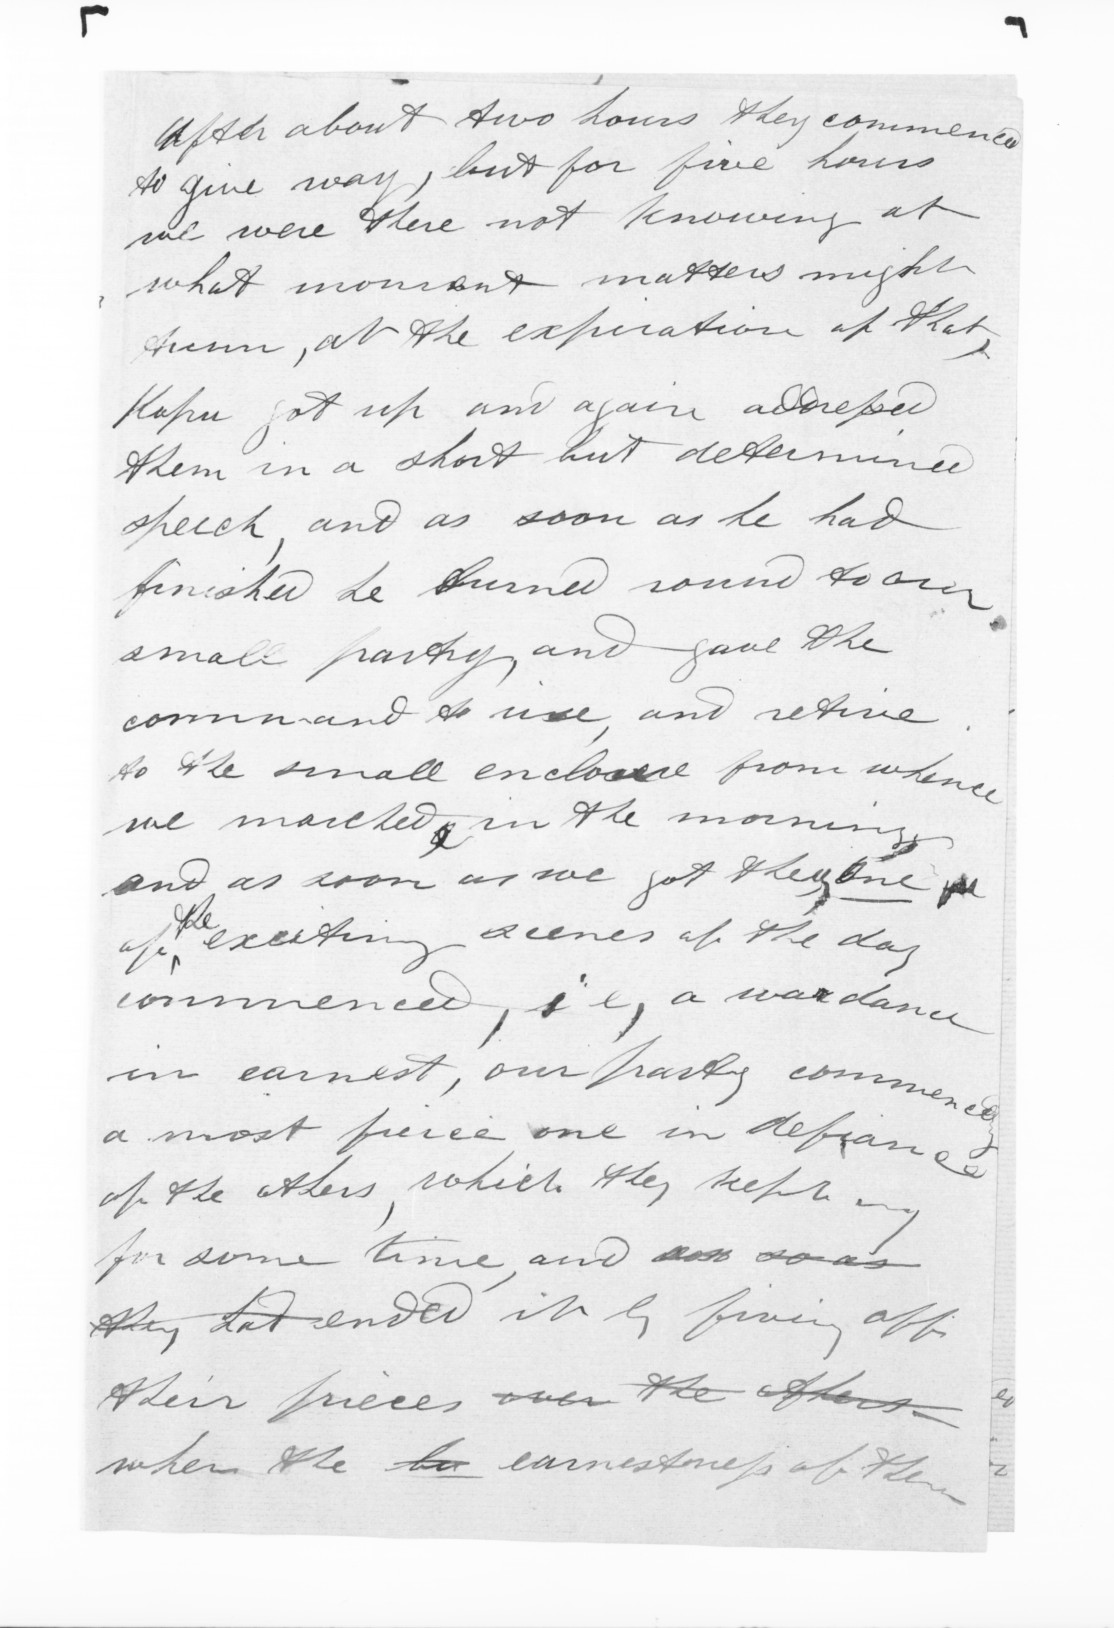 After about two hours they commenced
to give way, but for five hours
we were there not knowing at
what moment matters might
turn, at the expiration of that,
Kapu got up and again addressed
them in a short but determined
speech, and as soon as he had
finished he turned round to our
small party, and gave the
command to rise, and retire
to the small enclosure from whence
we marched, in the morning
and as soon as we got they, one
of the exciting scenes of the day
commenced, i e, a war dance
in earnest, our party commencing
a most fierce one in defiance
of the others, which they kept
for some time, and so as
they had ended it by firing off
their pieces over the others
when the earnestness of them